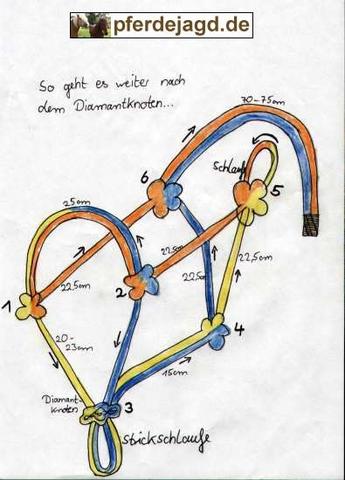 pferdejagd.de
So geht es weiter nach
dem Diamantknoten...
70-75cm
Schlaufe
6
5
25cm
22,5cm
22,5cm
22,5cm
22,5cm
1
2
4
20-
23cm
15cm
Diamant-
knoten
3
Strickschlaufe